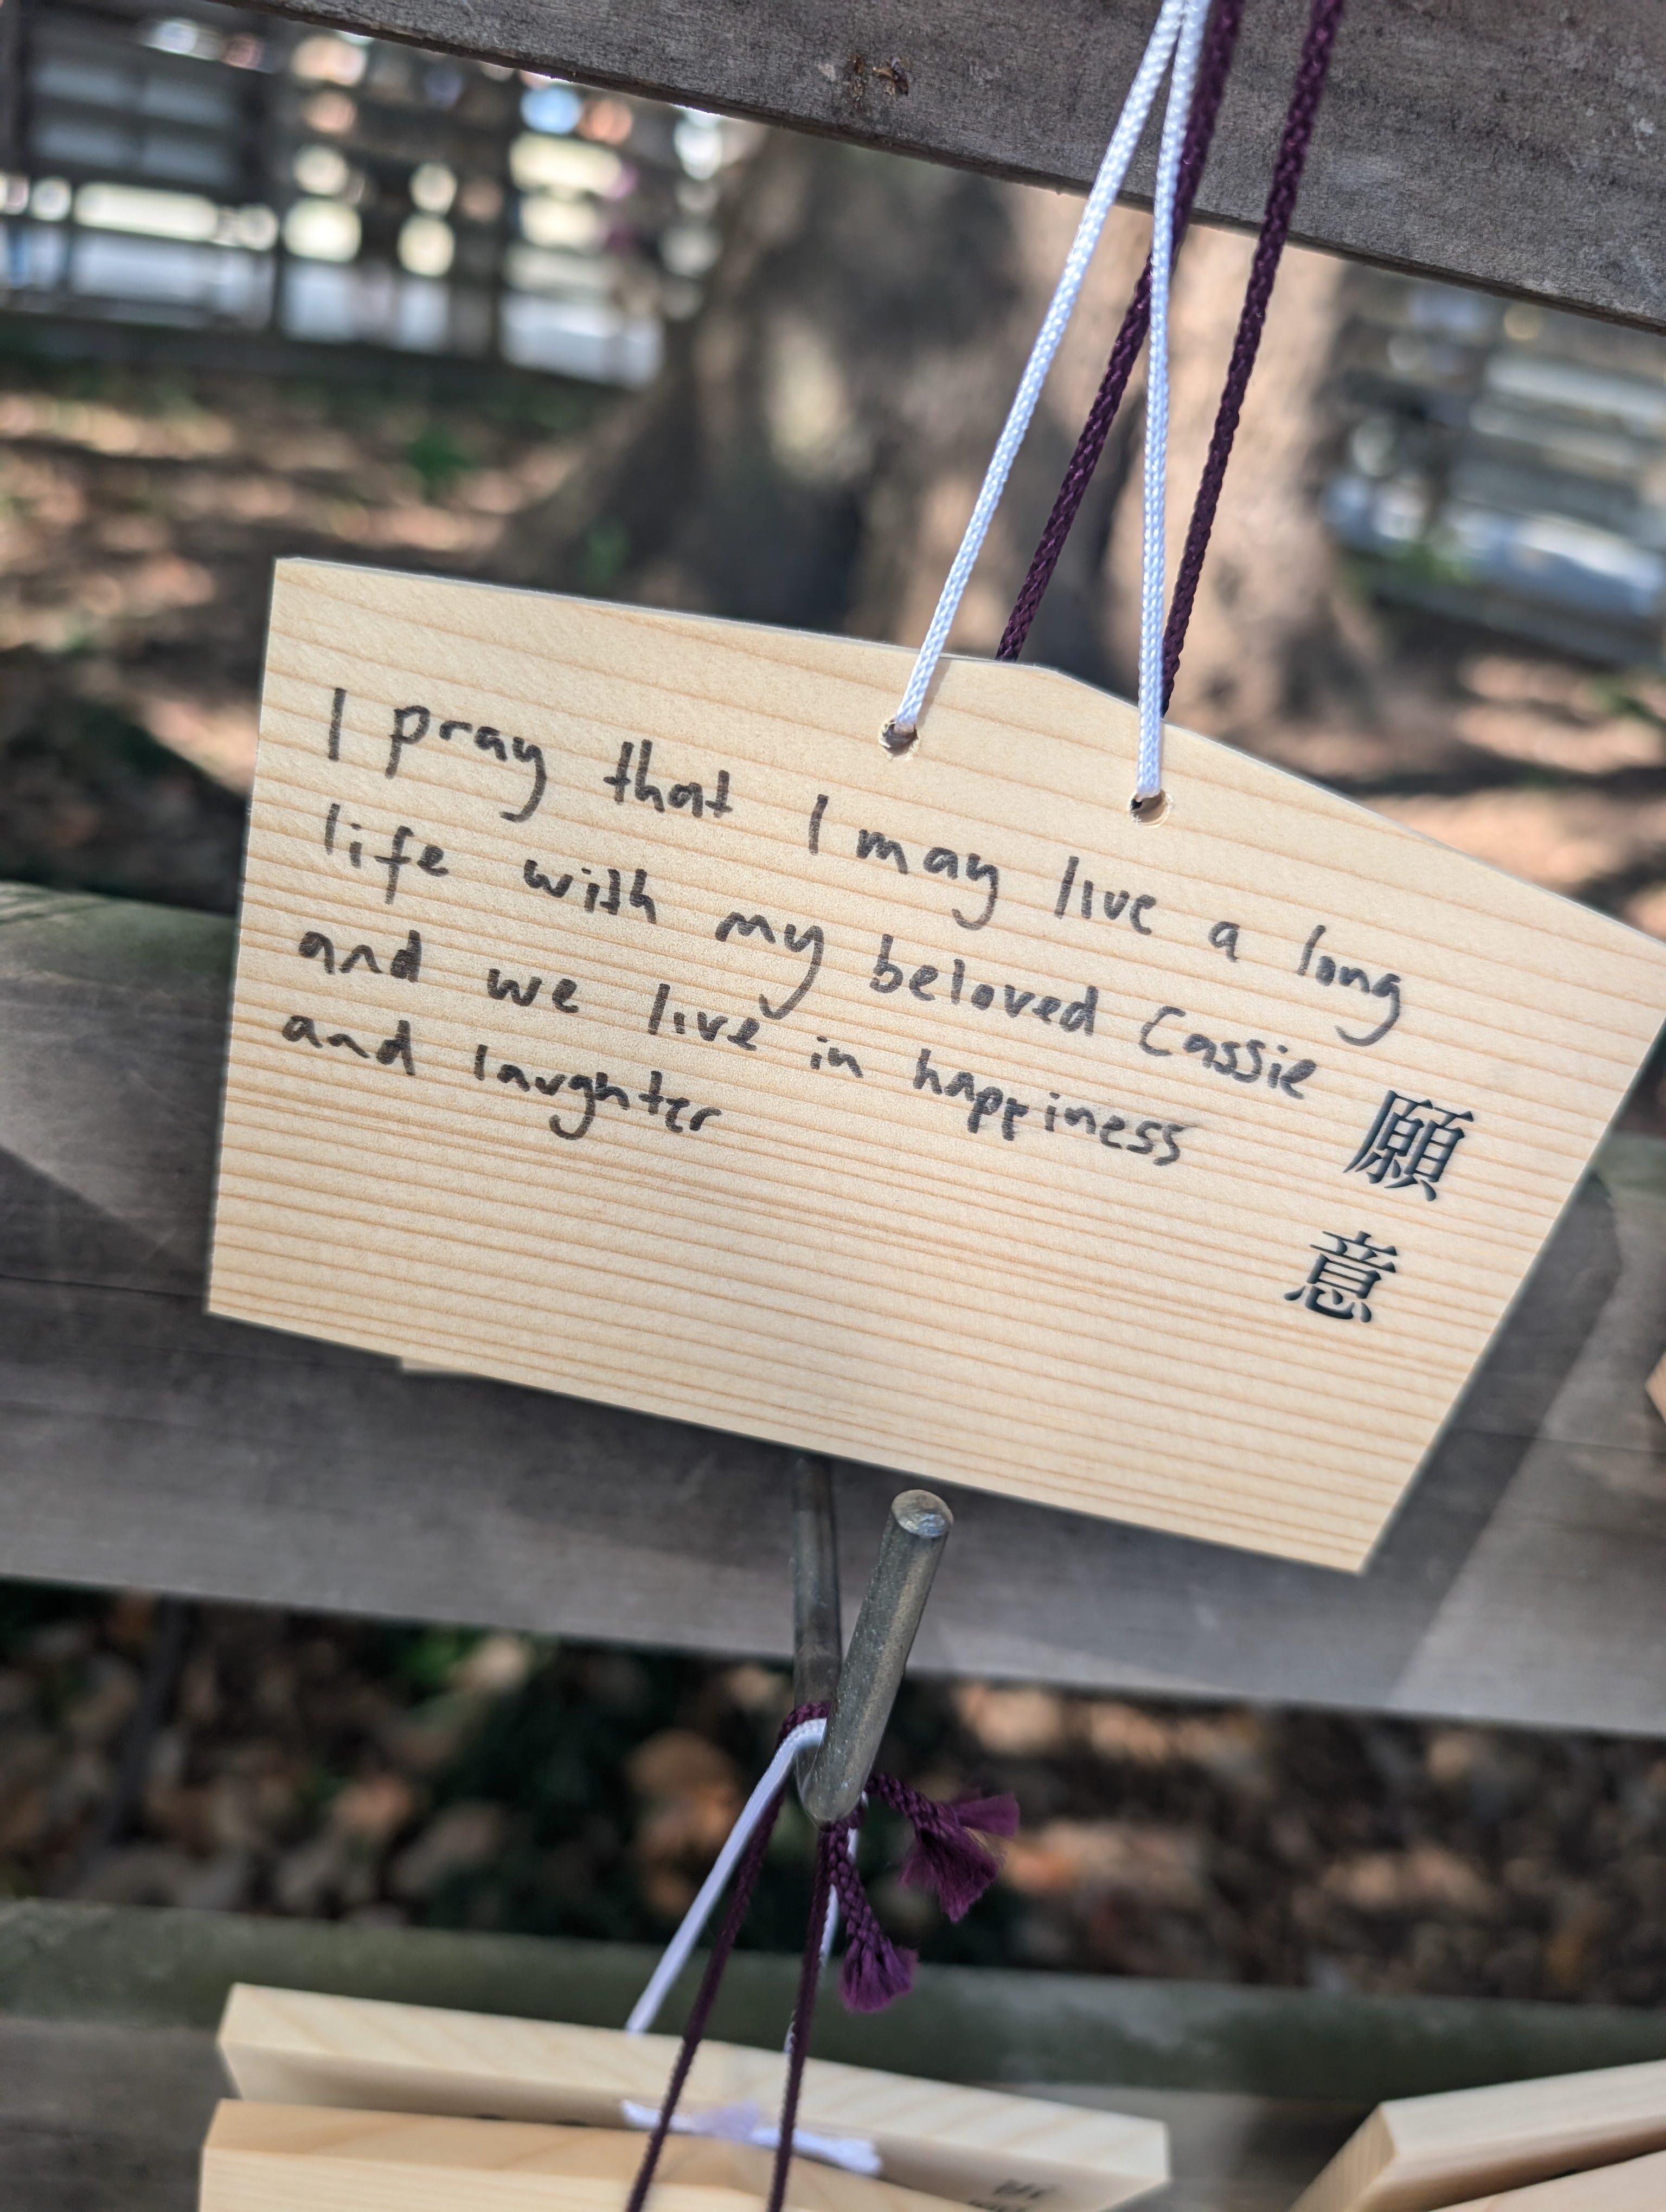 I pray that I may live a long
life with my beloved Cassie
and we live in happiness
and laughter
願
意